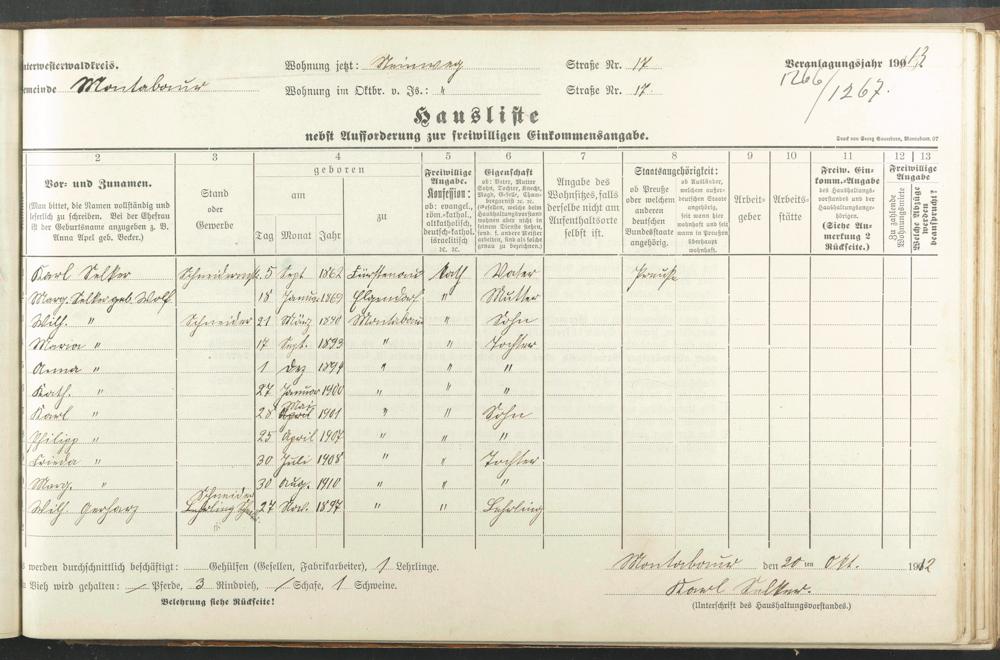 nterwesterwaldkreis. Wohnung jetzt: Steinweg Straße Nr. 17 Veranlagungsjahr 1913
emeinde Montabaur Wohnung im Oktbr. v. Js.: " Straße Nr. 17. 1266/1267.
Hausliste
nebst Aufforderung zur freiwilligen Einkommensangabe.
Druck von Georg Sauerborn, Montabaur. 07
2 3 4 5 6 7 8 9 10 11 12 13
Vor- und Zunamen.
(Man bittet, die Namen vollständig und
leserlich zu schreiben. Bei der Ehefrau
ist der Geburtsname anzugeben z. B.
Anna Apel geb. Becker.)
Stand
oder
Gewerbe
geboren
am zu
Tag Monat Jahr
Freiwillige
Angabe.
Konfession:
ob: evangel.,
röm.-kathol.,
altkatholisch,
deutsch-kathol.,
israelitisch
ec. ec.
Eigenschaft
ob: Vater, Mutter
Sohn, Tochter, Knecht,
Magd, Geselle, Cham-
bregarnist ec. ec.
(Gesellen, welche dem
Haushaltungsvorstand
wohnen aber nicht in
seinem Dienste stehen,
genau zu bezeichnen.)
Angabe des
Wohnsitzes, falls
derselbe nicht am
Aufenthaltsorte
selbst ist.
Staatsangehörigkeit:
ob Preuße
oder welchem
anderen
deutschen
Bundesstaate
angehörig.
ob Ausländer,
welchem außer-
deutschen Staate
angehörig,
seit wann hier
wohnhaft und seit
wann in Preußen
überhaupt
wohnhaft.
Arbeit-
geber
Arbeits-
stätte
Freiw. Ein-
komm.-Angabe
des Haushaltungs-
vorstandes und der
Haushaltungsange-
hörigen.
(Siehe An-
merkung 2
Rückseite.)
Freiwillige
Angabe
Zu zahlende
Wohnungsmiete
Welche Abzüge
werden
beansprucht?
Karl Selker Schneidermst. 5 Sept 1862 Fürstenau Kath Vater Preuße
Marg. Selker geb. Wolf 18 Januar 1869 Elgendorf " Mutter
Wilh. " Schneider 21 März 1890 Montabaur " Sohn
Maria " 17 Sept. 1893 " " Tochter
Anna " 1 Dez 1894 " " "
Kath. " 27 Januar 1900 " "
Karl " 28 Mai 1901 " " Sohn
Philipp " 25 April 1907 " "
Frieda " 30 Juli 1908 " " Tochter
Marg. " 30 Aug. 1910 " " "
Wilh Gerharz Schneider Lehrling 27 Nov. 1897 " " Lehrling
werden durchschnittlich beschäftigt: Gehülfen (Gesellen, Fabrikarbeiter), 1 Lehrlinge.
Vieh wird gehalten: / Pferde, 3 Rindvieh, / Schafe, 1 Schweine.
Belehrung siehe Rückseite!
Montabaur den 20 ten Okt. 1912
Karl Selker.
(Unterschrift des Haushaltungsvorstandes.)